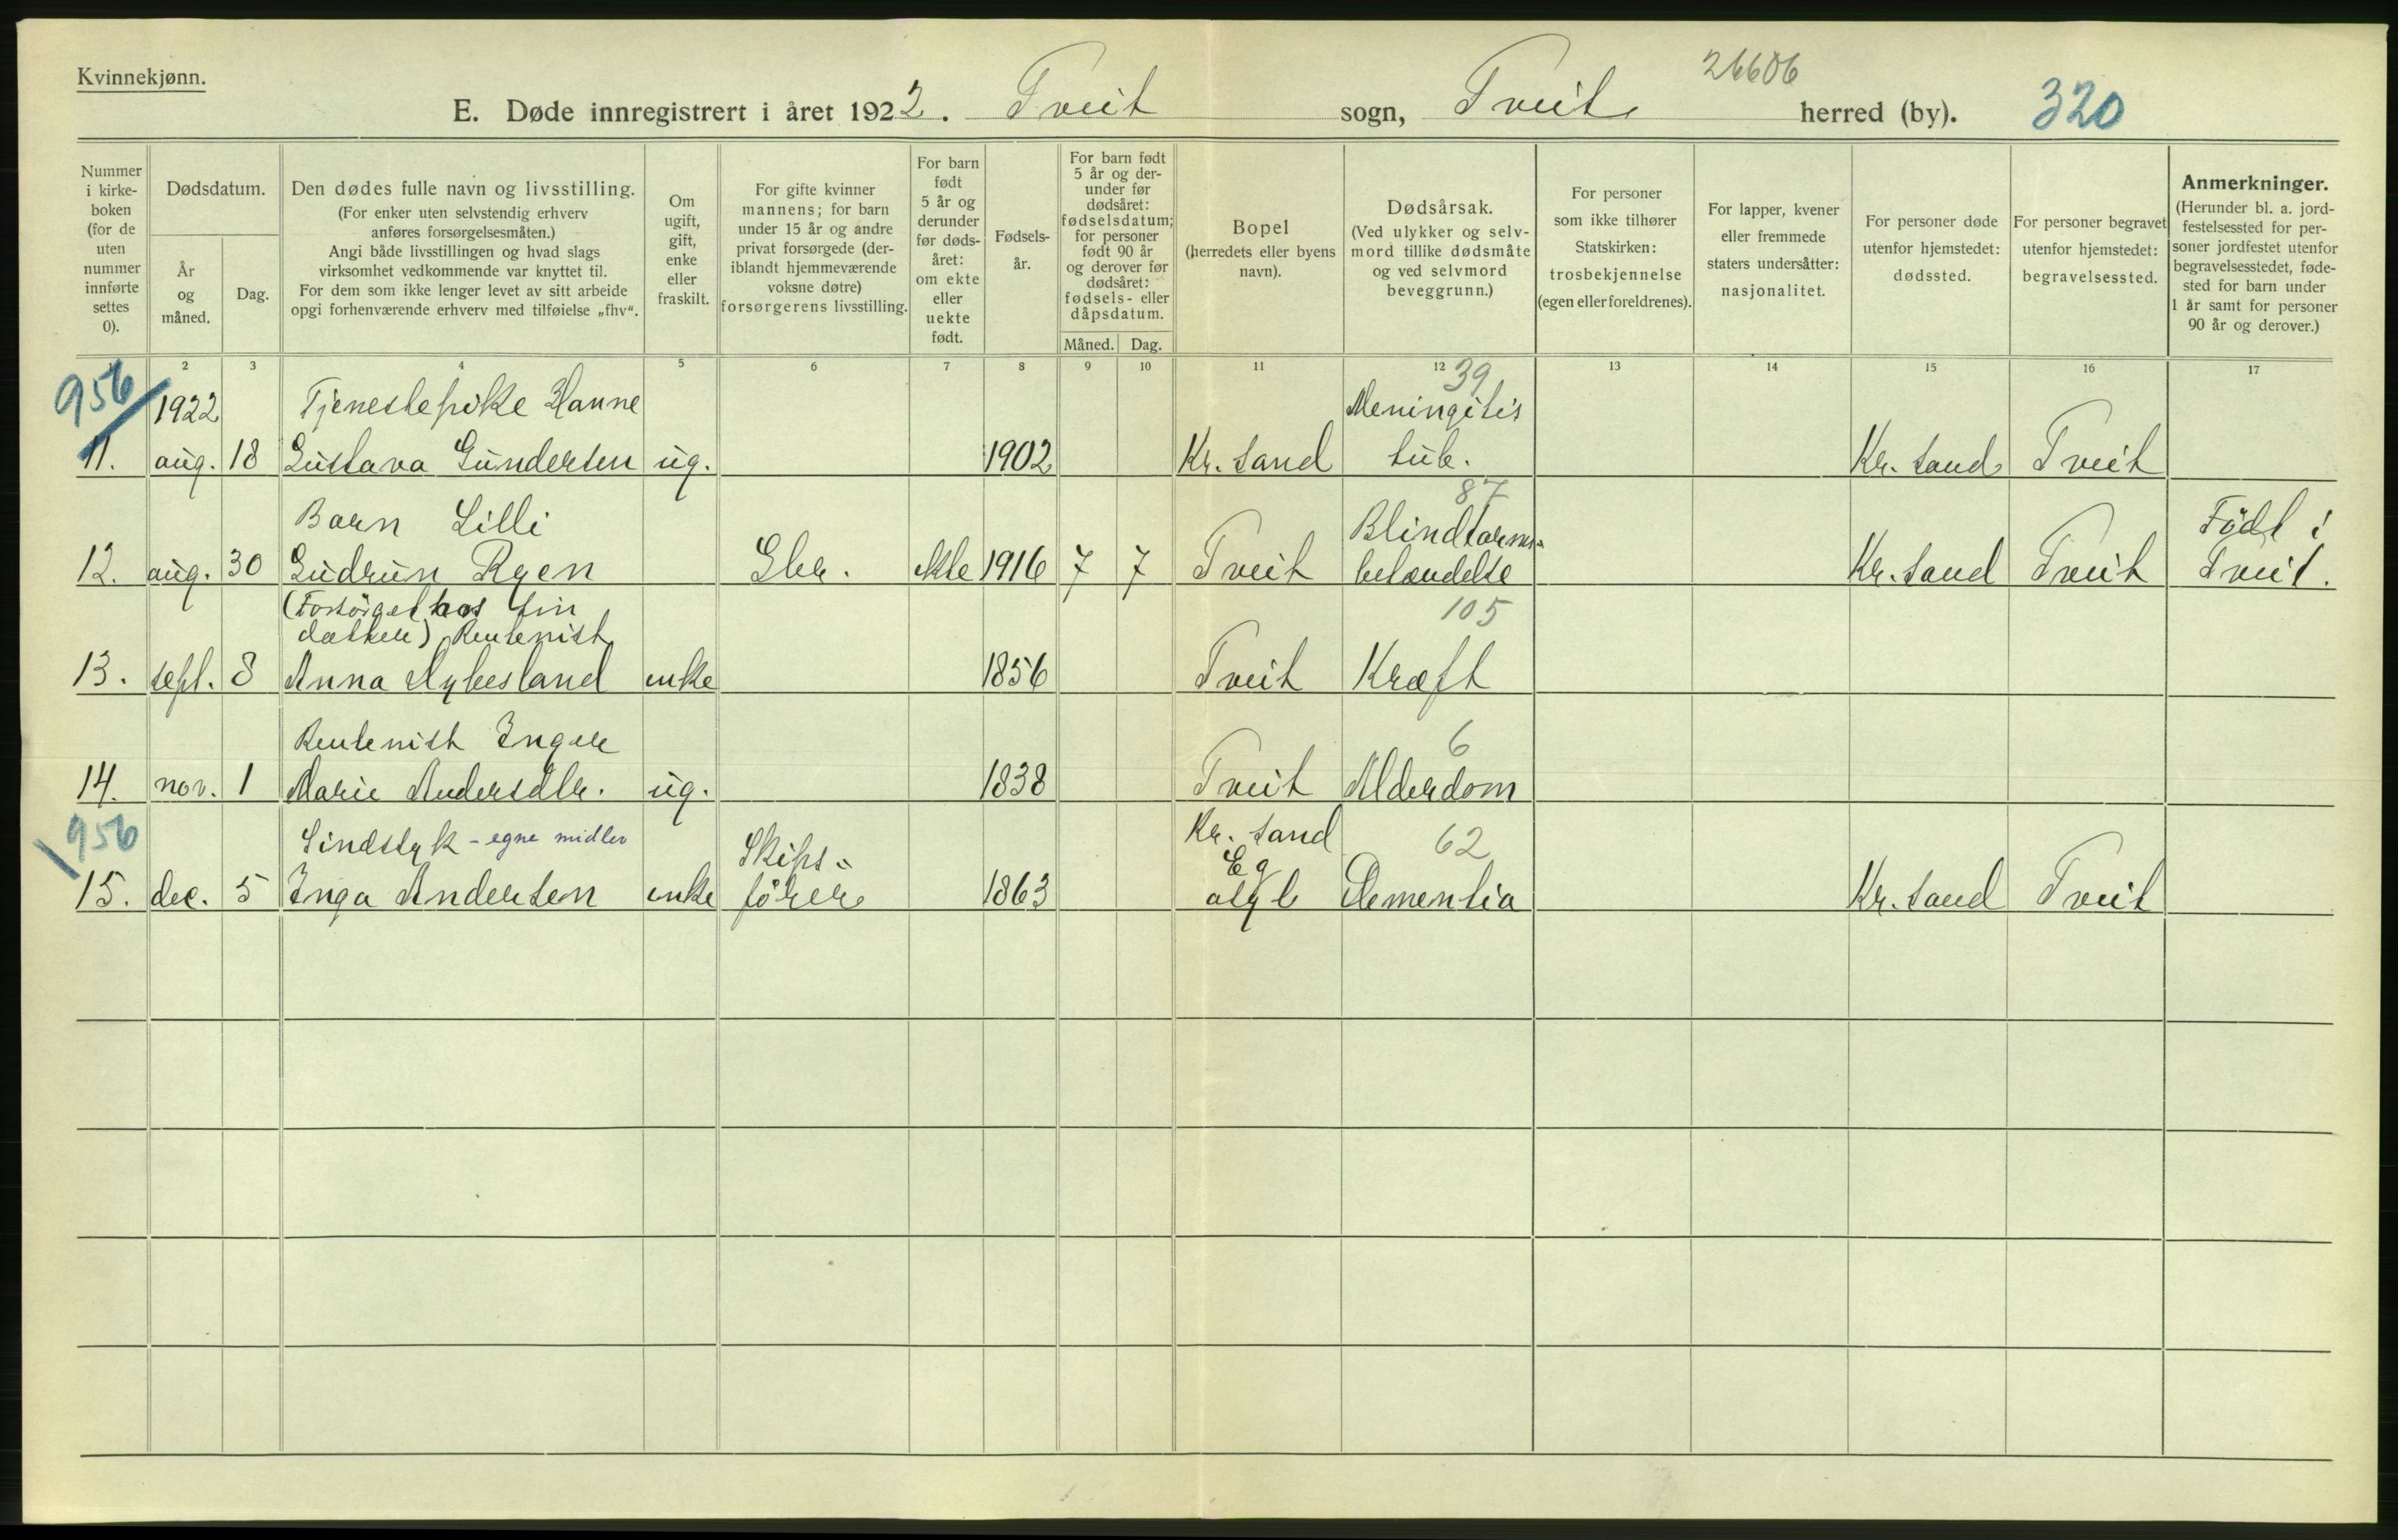 Kvinnekjønn.
26606
E. Døde innregistrert i året 1922. Tveit sogn, Tveit herred (by). 320
Nummer i kirke-boken (for de uten nummer innførte settes 0).
Dødsdatum.
År og måned.
Dag.
Den dødes fulle navn og livsstilling.
(For enker uten selvstendig erhverv
anføres forsørgelsesmåten.)
Angi både livsstillingen og hvad slags
virksomhet vedkommende var knyttet til.
For dem som ikke lenger levet av sitt arbeide
opgi forhenværende erhverv med tilføielse „fhv“.
Om
ugift,
gift,
enke
eller
fraskilt.
For gifte kvinner
mannens; for barn
under 15 år og andre
privat forsørgede (der-
iblandt hjemmeværende
voksne døtre)
forsørgerens livsstilling.
For barn
født
5 år og
derunder
før døds-
året:
om ekte
eller
uekte
født.
Fødsels-
år.
For barn født
5 år og der-
under før
dødsåret:
fødselsdatum;
for personer
født 90 år
og derover før
dødsåret:
fødsels- eller
dåpsdatum.
Måned. Dag.
Bopel
(herredets eller byens
navn).
Dødsårsak.
(Ved ulykker og selv-
mord tillike dødsmåte
og ved selvmord
beveggrunn.)
For personer
som ikke tilhører
Statskirken:
trosbekjennelse
(egen eller foreldrenes).
For lapper, kvener
eller fremmede
staters undersåtter:
nasjonalitet.
For personer døde
utenfor hjemstedet:
dødssted.
For personer begravet
utenfor hjemstedet:
begravelsessted.
Anmerkninger.
(Herunder bl. a. jord-
festelsessted for per-
soner jordfestet utenfor
begravelsesstedet, føde-
sted for barn under
1 år samt for personer
90 år og derover.)
2 3 4 5 6 7 8 9 10 11 12 13 14 15 16 17
956 39
1922 Tjenestepike Hanne Meningitis
11. aug. 18 Gustava Gundersen ug. 1902 Kr. sand tub. Kr. sand Tveit
87
Barn Lilli Blindtarms- Født i
12. aug. 30 Gudrun Ryen Gbr. ekte 1916 7 7 Tveit betændelse Kr. sand Tveit Tveit.
(Forsørget hos sin 105
datter) Rentenist
13. sept. 8 Anna enke 1856 Tveit Kræft
Rentenist Inger 6
14. nov. 1 Marie Andersdtr. ug. 1838 Tveit Alderdom
956 Sindssyk - egne midler Skips- Kr. sand 62
Eg
15. dec. 5 Inga Andersen enke fører 1863 asyl Dementia Kr. sand Tveit